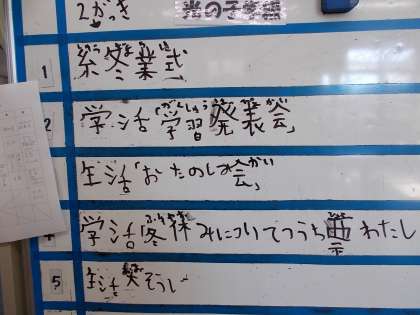 2がっき
1 終業式
2 学活「学習発表会」
生活「おたのしみ会」
4 学活「冬休みについてつうち票わたし
5 生活 大そうじ